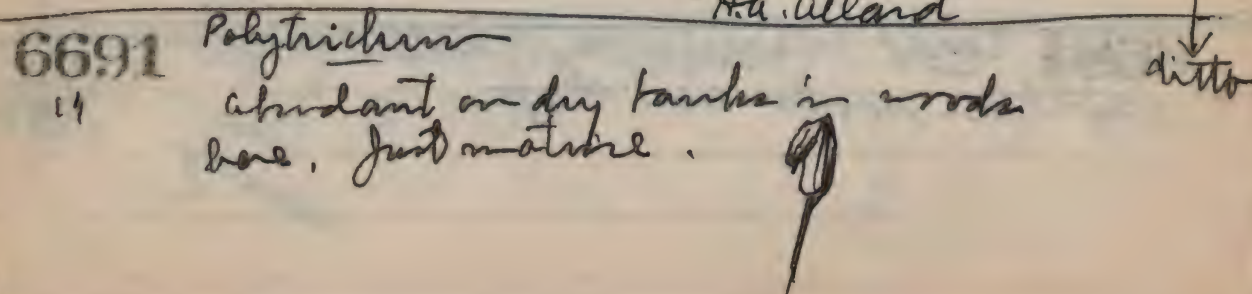 H.A. Allard
6691 Polytrichum
ditto
14 abundant on dry banks in woods
here. Just mature.